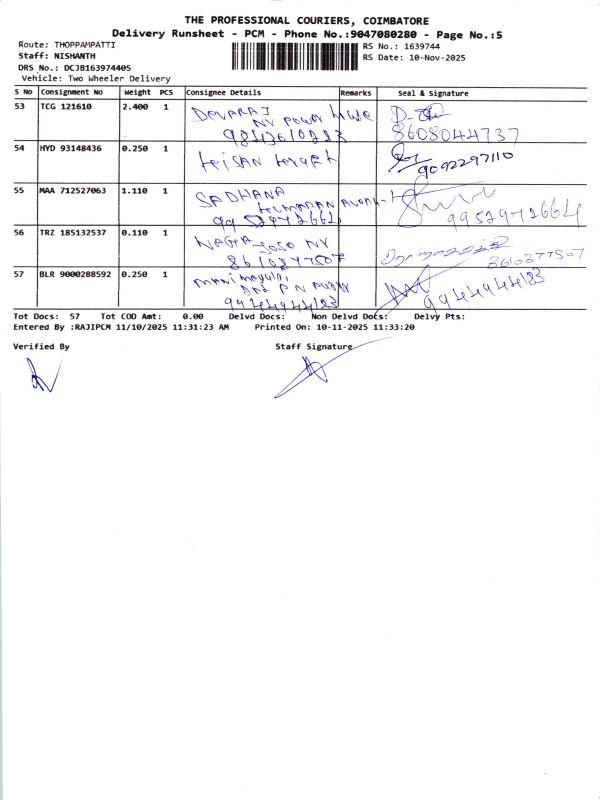 THE PROFESSIONAL COURIERS, COIMBATORE
Delivery Runsheet - PCM - Phone No.:9047080280 - Page No.:5
Route: THOPPAMPATTI
Staff: NISHANTH
DRS No.: DCJB163974405
Vehicle: Two Wheeler Delivery
RS No.: 1639744
RS Date: 10-Nov-2025
S No Consignment No Weight PCS Consignee Details Remarks Seal & Signature
53 TCG 121610 2.400 1 DEVARAJ
NV POWER
8608044737
54 HYD 93148436 0.250 1
9092297110
55 MAA 712527063 1.110 1 SADHANA
9952972664
9952972664
56 TRZ 185132537 0.110 1 NAGA
57 BLR 9000288592 0.250 1
9944944183
9944944183
Tot Docs: 57 Tot COD Amt: 0.00 Delvd Docs: Non Delvd Docs: Delvy Pts:
Entered By :RAJIPCM 11/10/2025 11:31:23 AM Printed On: 10-11-2025 11:33:20
Verified By Staff Signature